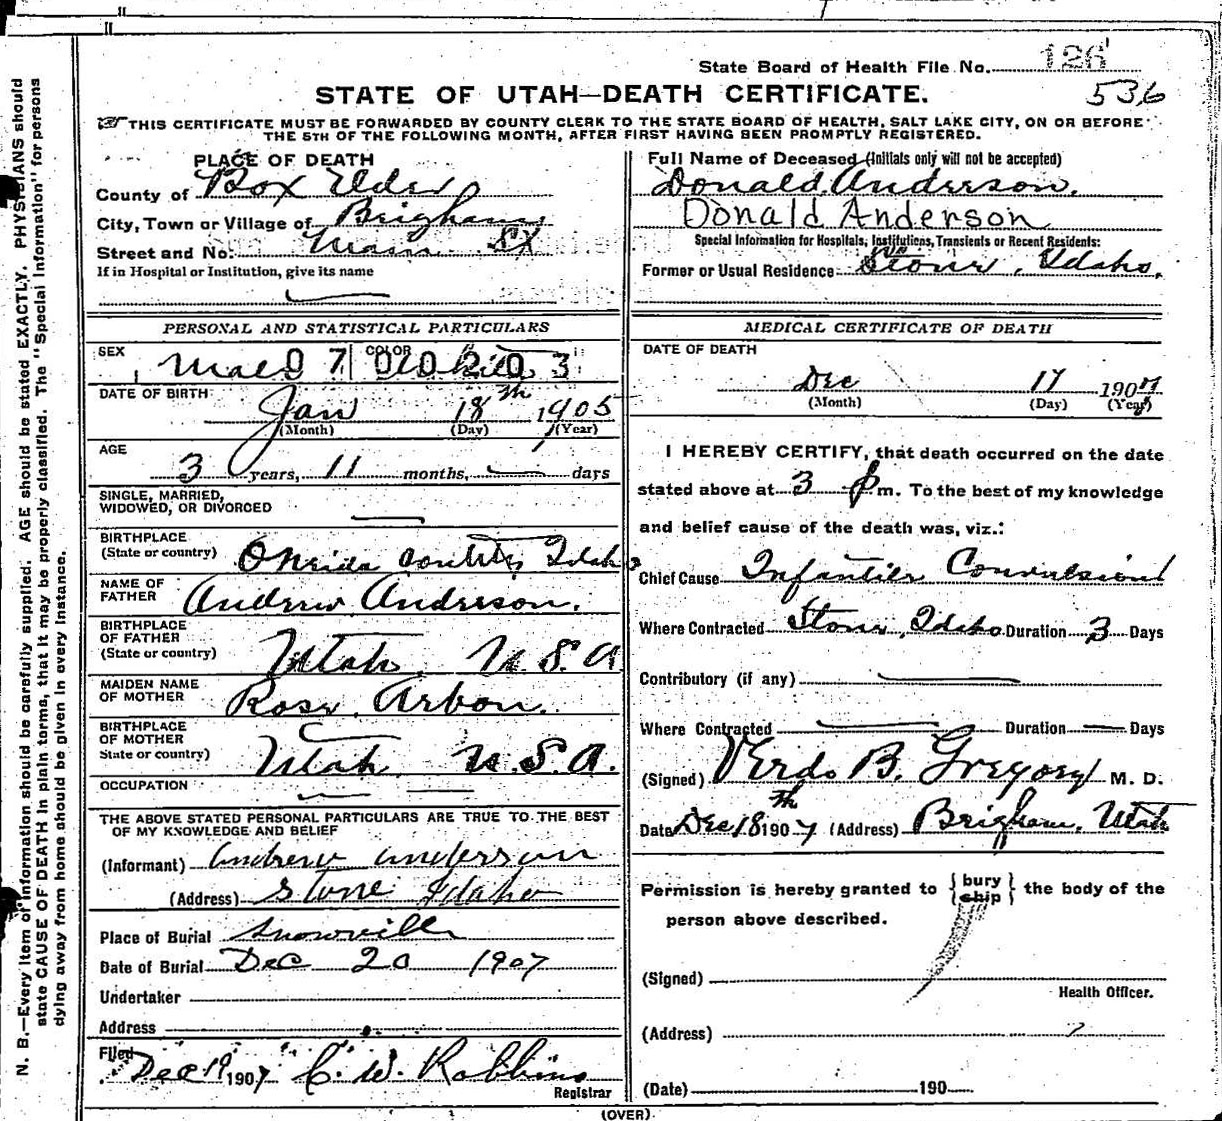 State Board of Health File No. 126
536
STATE OF UTAH—DEATH CERTIFICATE.
THIS CERTIFICATE MUST BE FORWARDED BY COUNTY CLERK TO THE STATE BOARD OF HEALTH, SALT LAKE CITY, ON OR BEFORE
THE 5TH OF THE FOLLOWING MONTH, AFTER FIRST HAVING BEEN PROMPTLY REGISTERED.
PLACE OF DEATH
County of Box Elder
City, Town or Village of Brigham
Street and No: Main St
If in Hospital or Institution, give its name
Full Name of Deceased (Initials only will not be accepted)
Donald Anderson.
Donald Anderson
Special Information for Hospitals, Institutions, Transients or Recent Residents:
Former or Usual Residence Stone, Idaho.
PERSONAL AND STATISTICAL PARTICULARS
SEX Male COLOR White
DATE OF BIRTH
Jan 18th 1905
(Month) (Day) (Year)
AGE
3 years, 11 months, — days
SINGLE, MARRIED,
WIDOWED, OR DIVORCED —
BIRTHPLACE
(State or country) Oneida County, Idaho
NAME OF
FATHER Andrew Anderson.
BIRTHPLACE
OF FATHER
(State or country) Utah, U.S.A
MAIDEN NAME
OF MOTHER Rose Arbon.
BIRTHPLACE
OF MOTHER
State or country) Utah U.S.A.
OCCUPATION — —
THE ABOVE STATED PERSONAL PARTICULARS ARE TRUE TO THE BEST
OF MY KNOWLEDGE AND BELIEF
(Informant) Andrew Anderson
(Address) Stone Idaho
Place of Burial Snowville
Date of Burial Dec 20 1907
Undertaker
Address
Filed Dec 19 1907 C. W. Robbins
Registrar
MEDICAL CERTIFICATE OF DEATH
DATE OF DEATH
Dec 17 1907
(Month) (Day) (Year)
I HEREBY CERTIFY, that death occurred on the date
stated above at 3 p m. To the best of my knowledge
and belief cause of the death was, viz.:
Chief Cause Infantile Convulsions
Where Contracted Stone, Idaho Duration 3 Days
Contributory (if any) —
Where Contracted — Duration — Days
(Signed) Verdo B. Gregory M. D.
Date Dec 18th 1907 (Address) Brigham, Utah
Permission is hereby granted to {bury
ship} the body of the
person above described.
(Signed)
Health Officer.
(Address)
(Date) 190
(OVER)
N. B.—Every item of information should be carefully supplied. AGE should be stated EXACTLY. PHYSICIANS should
state CAUSE OF DEATH in plain terms, that it may be properly classified. The "Special Information" for persons
dying away from home should be given in every instance.